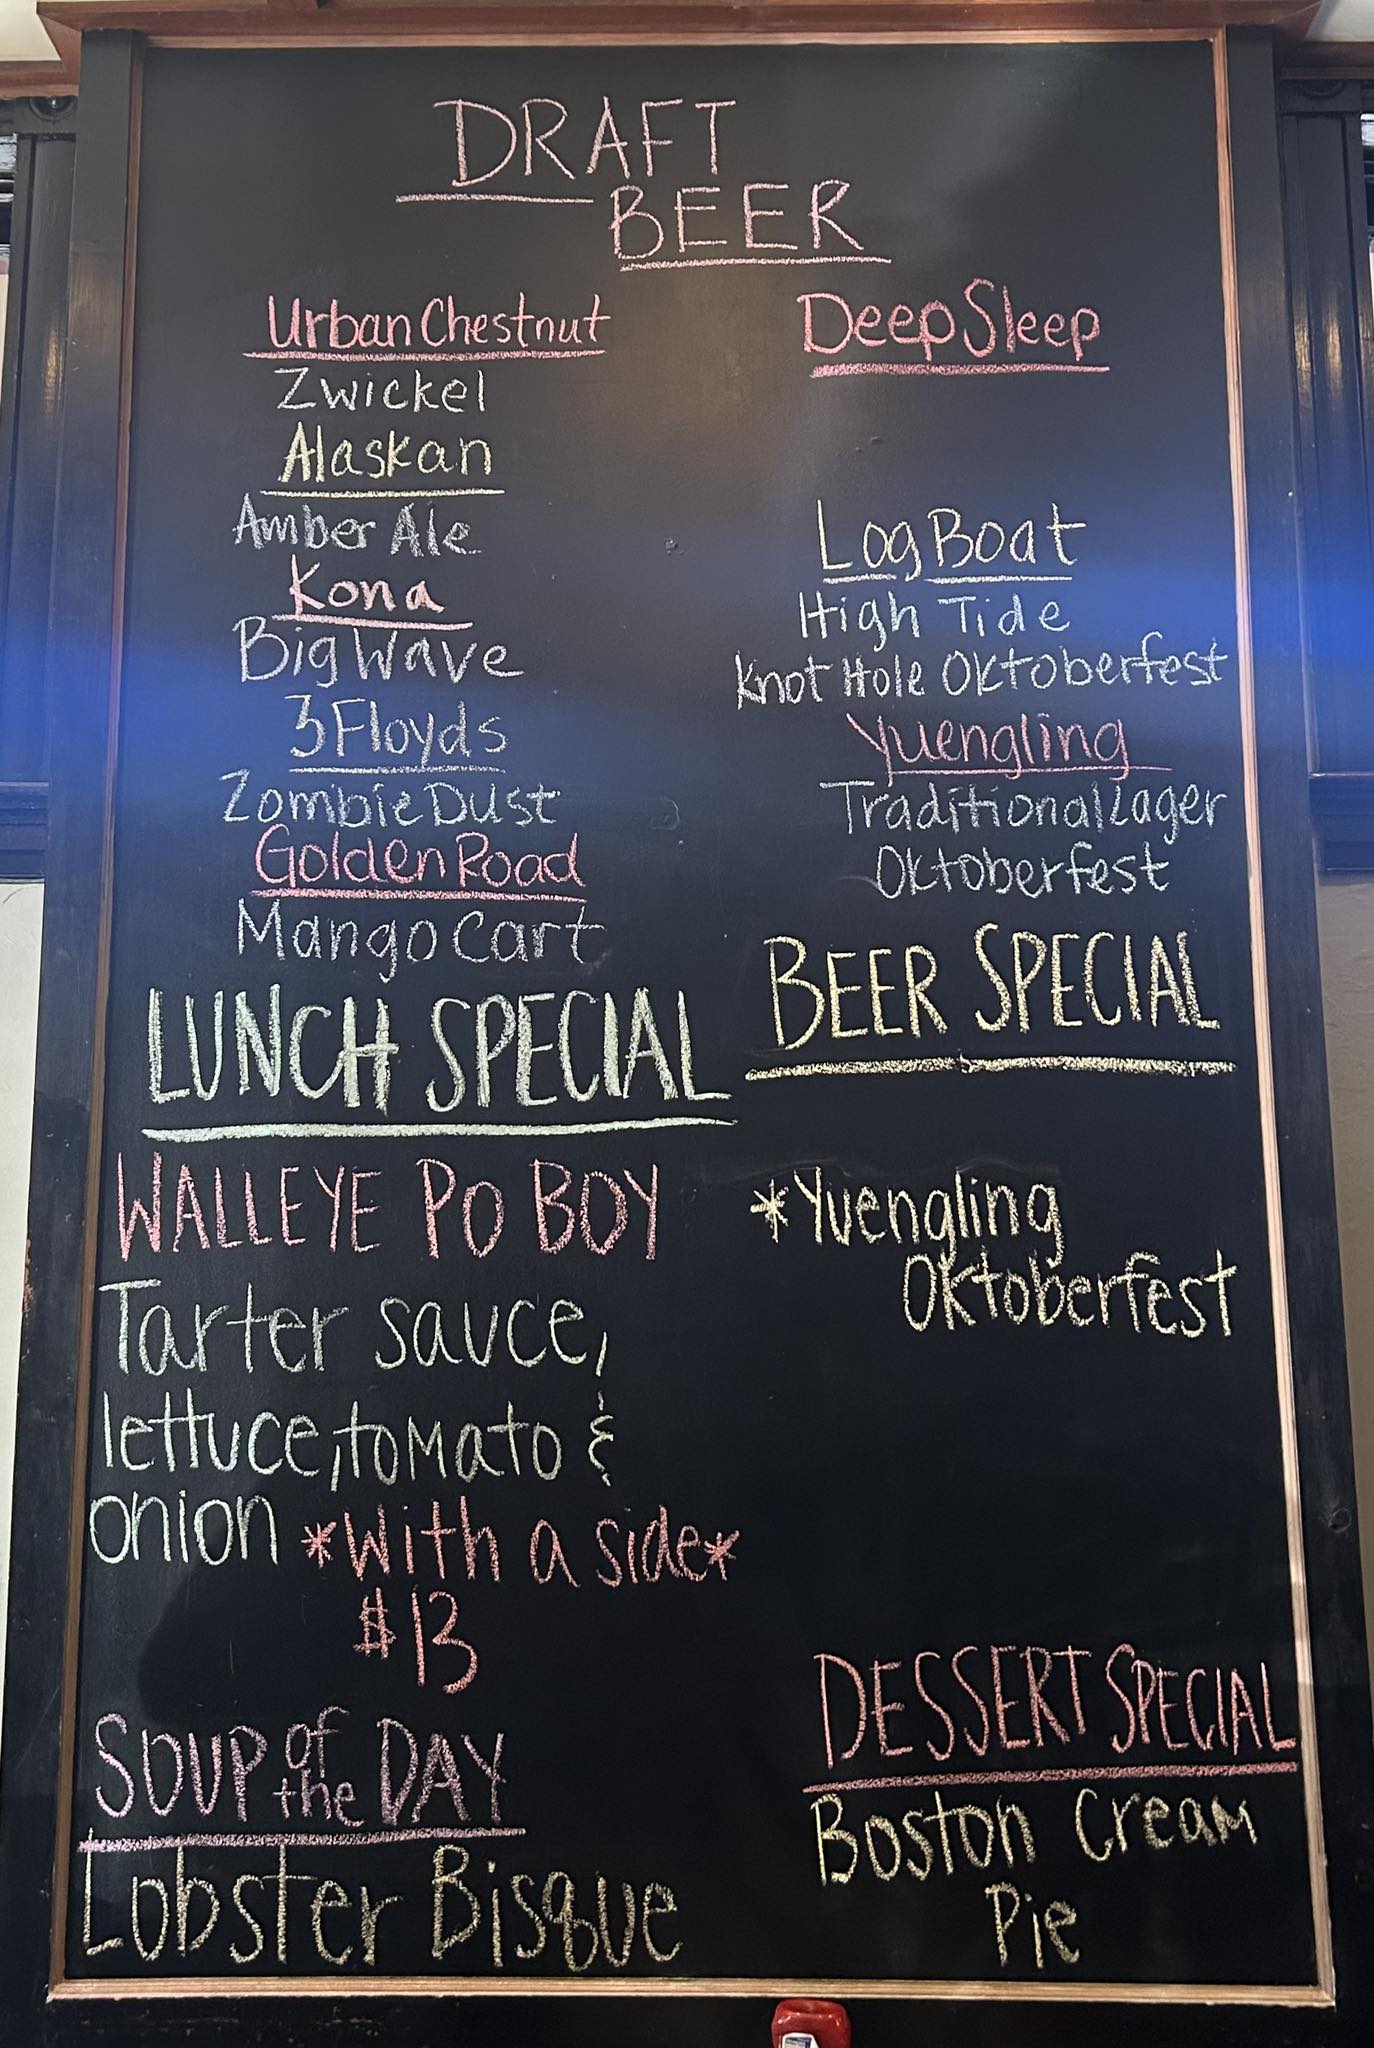 DRAFT
BEER
Urban Chestnut
Zwickel
Alaskan
Amber Ale
Kona
Big Wave
3 Floyds
Zombie Dust
Golden Road
Mango Cart
Deep Sleep
Log Boat
High Tide
Knot Hole Oktoberfest
Yuengling
Traditional Lager
Oktoberfest
LUNCH SPECIAL
WALLEYE PO BOY
Tarter sauce,
lettuce, tomato &
onion *With a side*
$13
SOUP of the DAY
Lobster Bisque
BEER SPECIAL
*Yuengling
Oktoberfest
DESSERT SPECIAL
Boston Cream
Pie